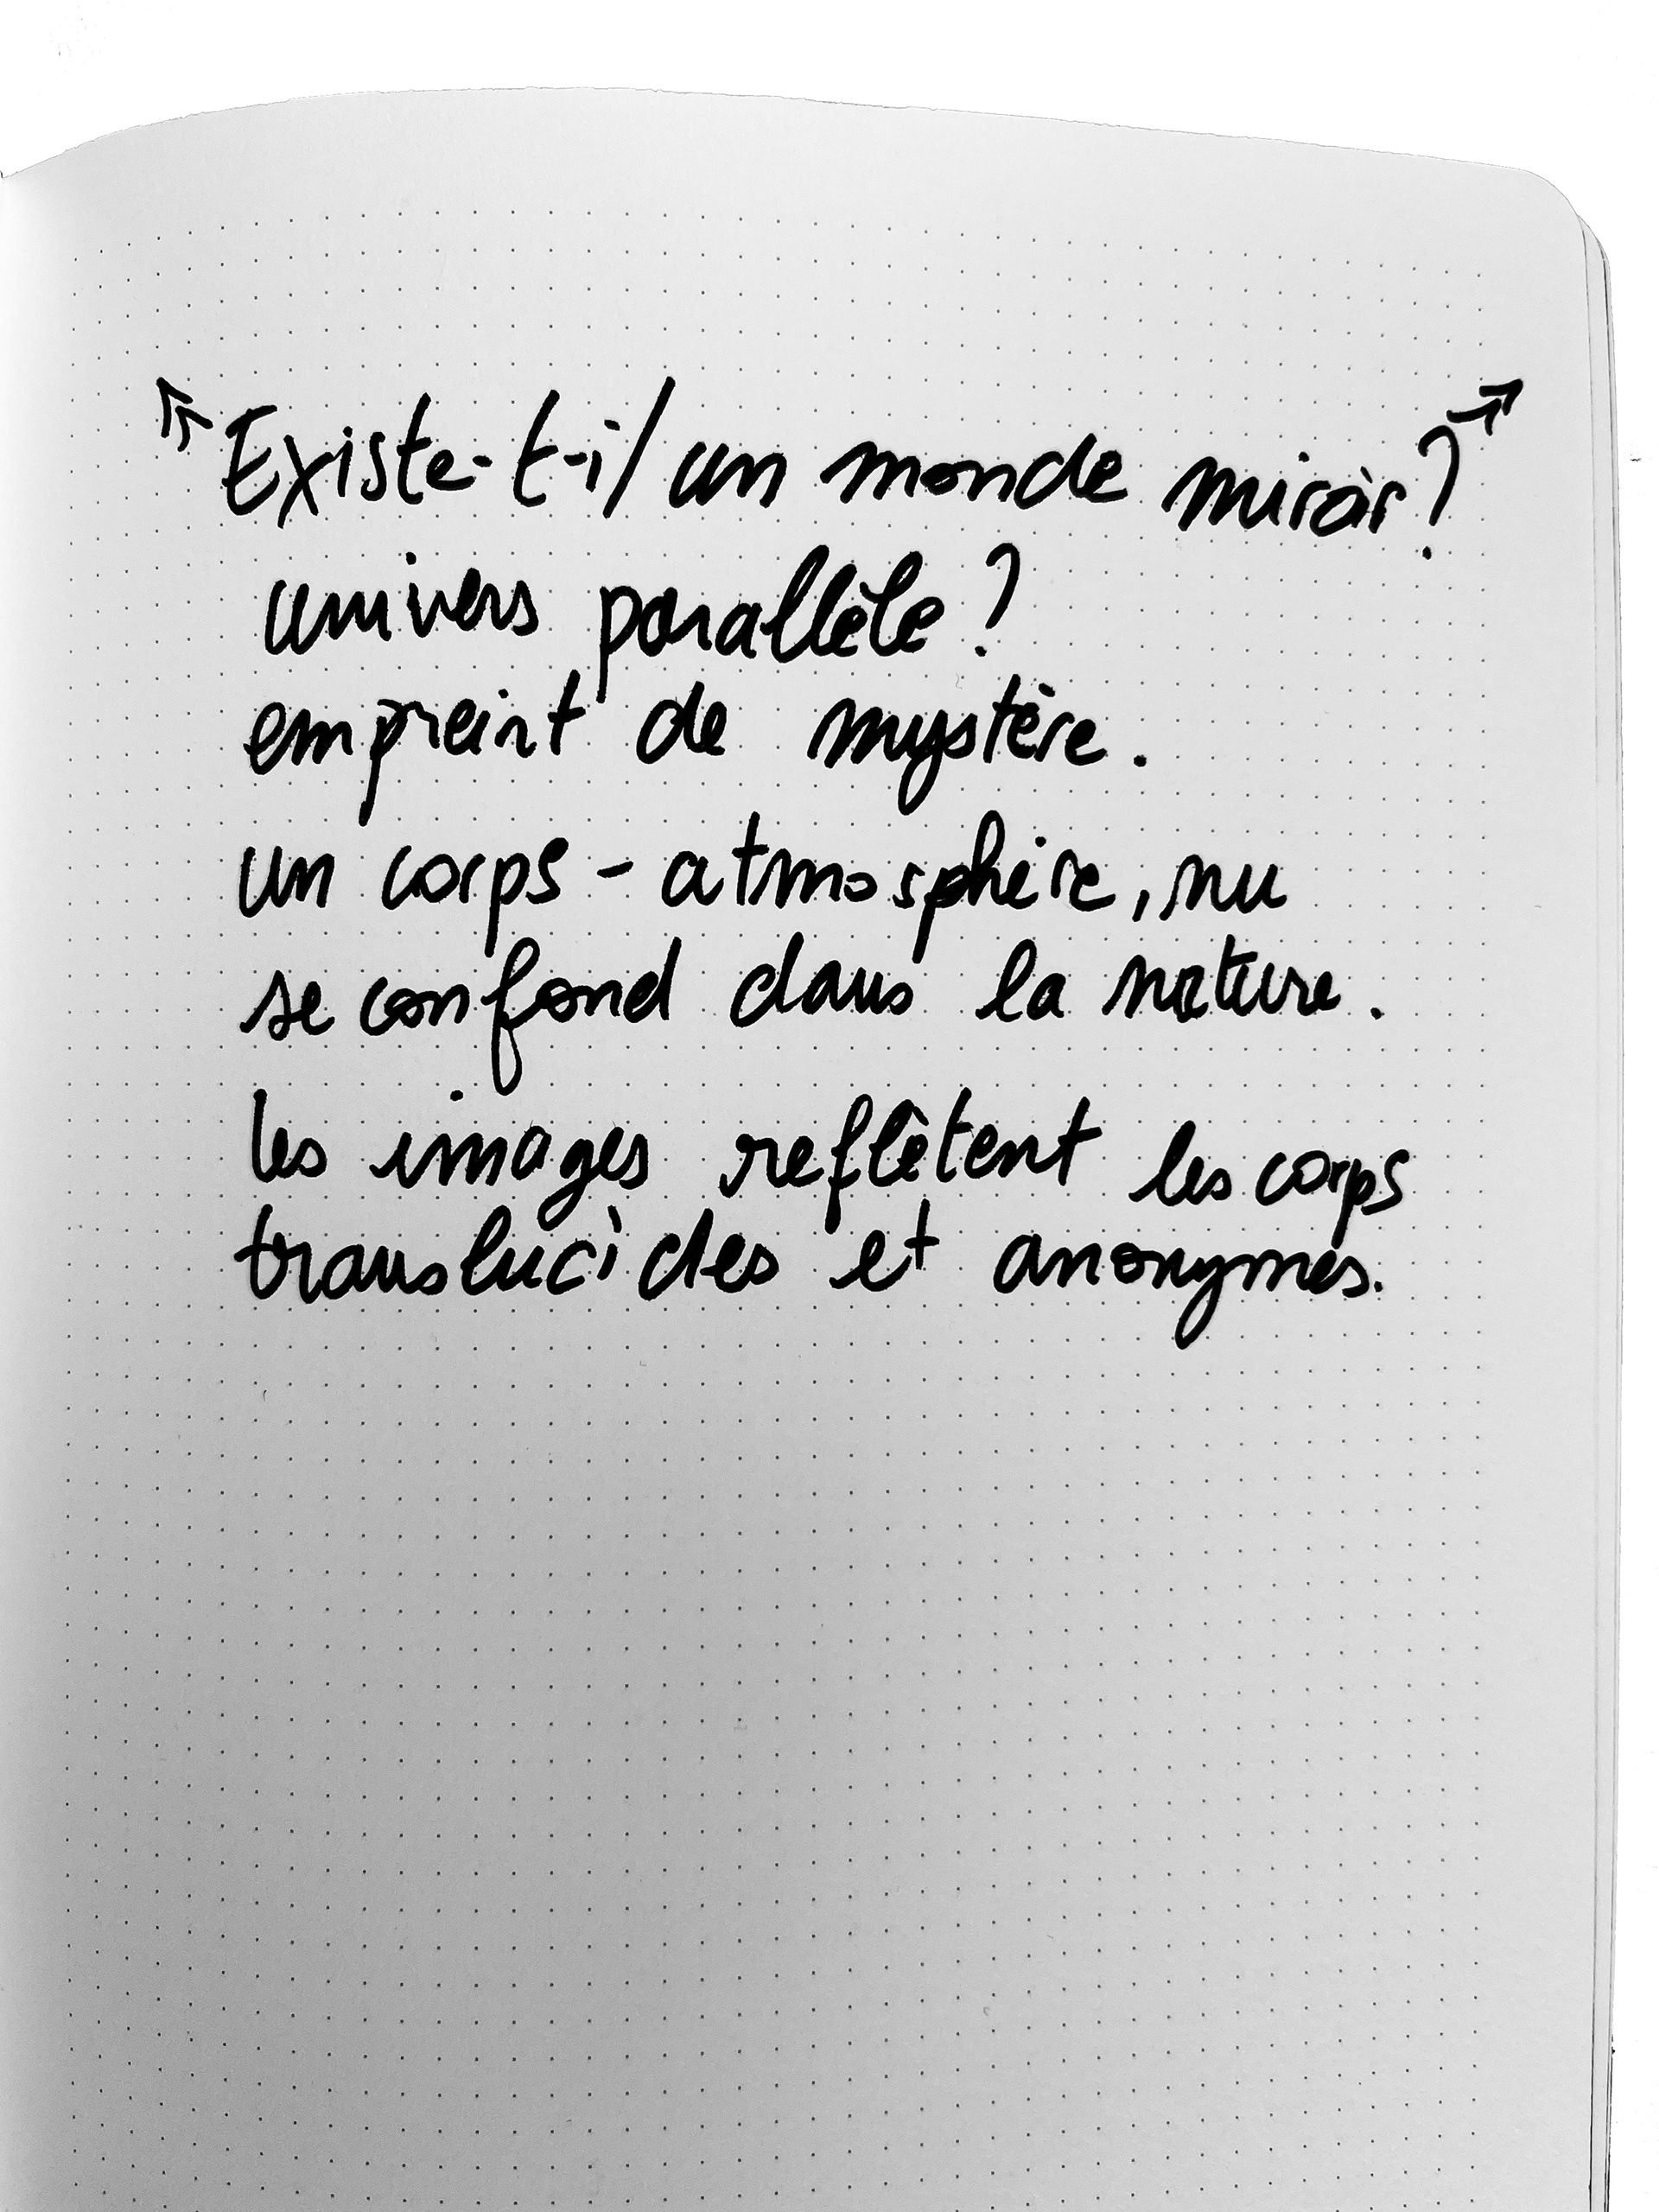 Existe-t-il un monde miroir?
univers parallèle?
empreint de mystère.
un corps - atmosphère, nu
se confond dans la nature.
les images reflètent les corps
translucides et anonymes.